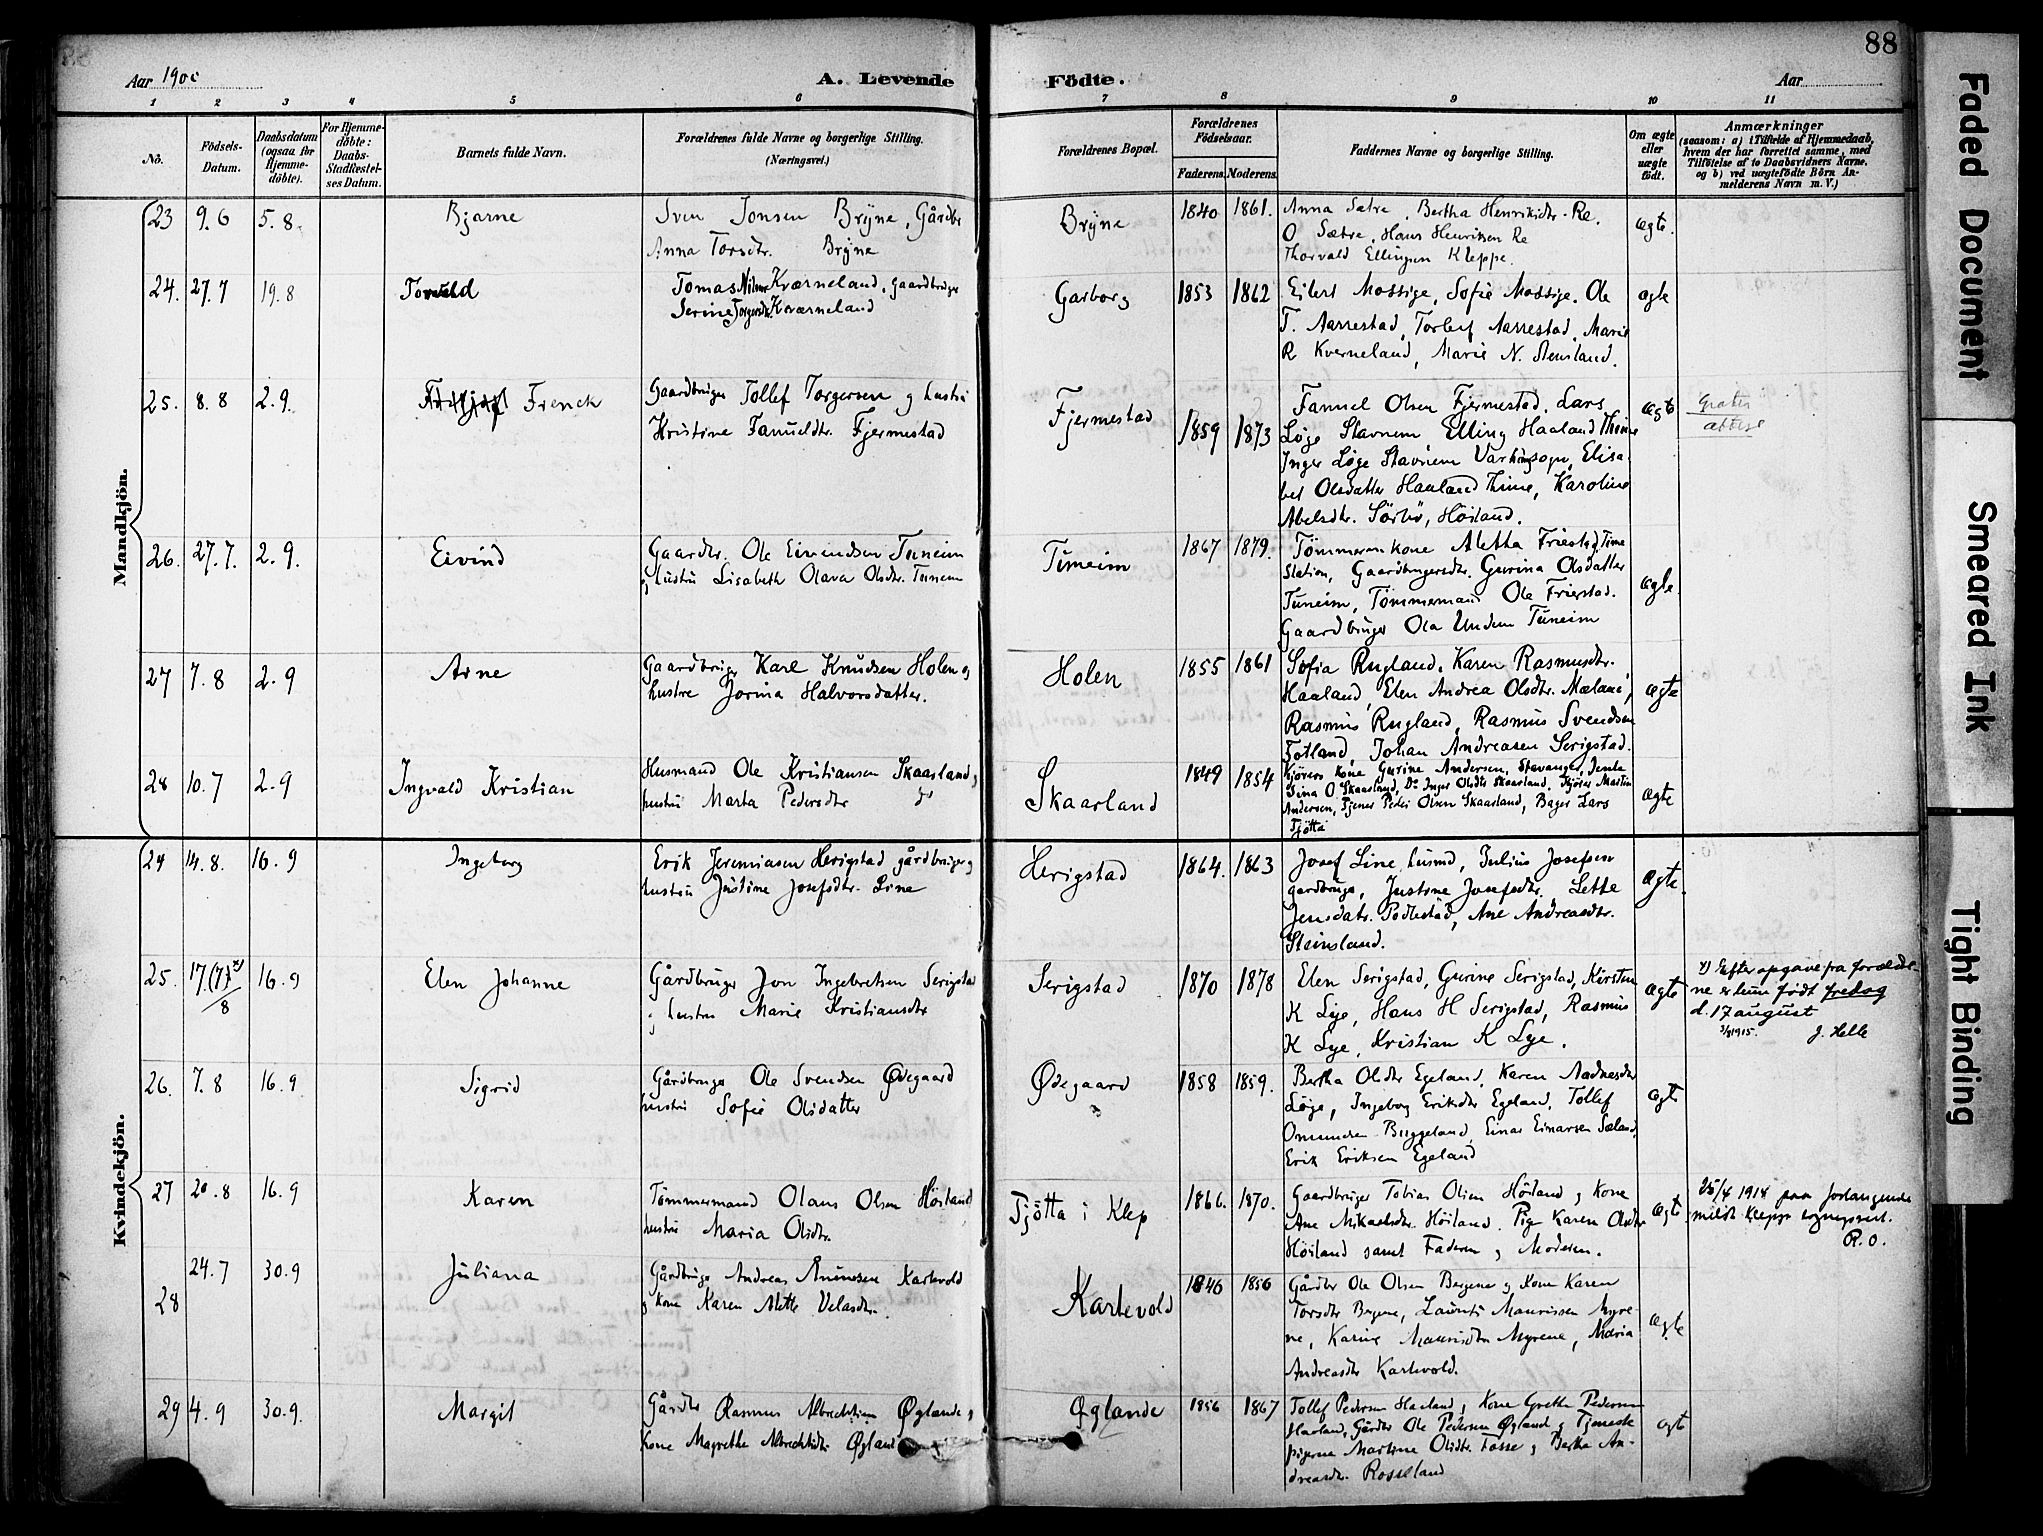 88
Aar 1900
A. Levende Födte.
Aar
1 2 3 4 5 6 7 8 9 10 11
No.
Födsels-Datum.
Daabsdatum (ogsaa for Hjemme-döbte).
For Hjemme-döbte: Daabs-Stadfestel-ses Datum.
Barnets fulde Navn.
Forældrenes fulde Navne og borgerlige Stilling.
(Næringsvei.)
Forældrenes Bopæl.
Forældrenes Födselsaar.
Faderens. Moderens.
Faddernes Navne og borgerlige Stilling.
Om ægte eller uægte födt.
Anmærkninger
(saasom: a) i Tilfælde af Hjemmedaab,
hvem der har forrettet samme, med
Tilföielse af to Daabsvidners Navne,
og b) ved uægtefödte Börn An-
melderens Navn m. V.)
Mandkjön.
23 9.6 5.8. Bjarne
Sven Jonsen Bryne, Gårdbr
Anna Torsdtr. Bryne
Bryne 1840 1861.
Anna Sætre, Bertha Henriksdtr Re.
O Sætre, Hans Henriksen Re
Thorvald Ellingsen Kleppe.
ægte.
24. 27.7 19.8 Torvald
Tomas Nilsen Kværneland, Gaardbruger
Serine Torgersdtr. Kværneland
Garborg 1853 1862
Eilert Mossige, Sofie Mossige. Ole
T. Aarrestad, Torlef Aarrestad, Marie
R Kverneland, Marie N. Stensland.
ægte
25. 8.8 2.9. Frenck
Gaardbruger Tollef Torgersen og hustru
Kristine Fanueldtr. Fjermestad
Fjermestad 1859 1873
Fanuel Olsen Fjermestad. Lars
Løge Stavnem, Elling Haaland Thime
Inger Løge Stavnem Varhaugsogn, Elisa-
bet Olsdatter Haaland Thime, Karoline
Abelsdtr. Sörbö, Höiland.
ægte
Gratis
attest
26. 27.7. 2.9. Eivind
Gaardbr. Ole Eivendsen Tuneim
og hustru Lisabeth Olava Olsdtr. Tuneim
Tuneim 1867 1879.
Tömmerm kone Aletta Friestad, Time
Station, Gaardbrugersdtr. Gurina Olsdatter
Tuneim, Tömmermand Ole Frierstad.
Gaardbruger Ola Undem Tuneim
ægte.
27 7.8 2.9 Arne
Gaardbruger Karl Knudsen Holen og
hustru Jorina Halvorsdatter.
Holen 1855 1861
Sofia Rugland, Karen Rasmusdtr.
Haaland, Elen Andrea Olsdtr. Mæland,
Rasmus Rugland, Rasmus Svendsen
Fotland, Johan Andreasen Serigstad.
ægte
28 10.7 2.9 Ingvald Kristian
Husmand Ole Kristiansen Skaarland
hustru Marta Pedersdtr do
Skaarland 1849 1854
Kjörers kone Gurine Andersen, Stavanger, Jente
Sina O Skaarland, Do Inger Olsdtr Skaarland, Kjörer Martin
Andersen, Tjener Peder Olsen Skaarland, Bager Lars
Tjötta
ægte
Kvindekjön.
24 14.8. 16.9 Ingeborg
Erik Jeremiasen Herigstad gårdbruger og
hustru Justine Josefsdtr. Line
Herigstad 1864. 1863
Josef Line husmd, Julius Josefsen
gardbruger, Justine Josefsdtr. Lette
Jensdatr. Podlestad, Ane Andreasdtr.
Steinsland.
Ægte.
25. 17(7)x)/8 16.9 Elen Johanne
Gårdbruger Jon Ingebretsen Serigstad
og hustru Marie Kristiansdtr
Serigstad 1870 1878
Elen Serigstad, Gurine Serigstad, Kirsten
K Lye, Hans H Serigstad, Rasmus
K Lye, Kristian K Lye.
ægte
x) Efter opgave fra forældre-
ne er hun født fredag
d. 17 august
3/9 1915. J. Helle
26. 7.8 16.9 Sigrid
Gårdbruger Ole Svendsen Ødegaard
hustru Sofie Olsdatter
Ødegaard 1858 1859.
Bertha Olsdtr Egeland, Karen Aadnesdtr
Løge, Ingeborg Eriksdtr Egeland, Tollef
Omundsen Buggeland, Einar Einarsen Sæland,
Erik Eriksen Egeland
ægte
27 20.8 16.9 Karen
Tømmermand Olaus Olsen Höiland
hustru Maria Olsdtr.
Tjötta i Klep 1866. 1870.
Gaardbruger Tobias Olsen Höiland og Kone
Ane Mikaelsdtr. Höiland. Pige Karen Olsdtr
Höiland samt Faderen og Moderen.
ægte
25/4 1918 paa forlangende
meldt Klepp sogneprest.
R.O.
28 24.7 30.9 Juliana
Gårdbruger Andreas Ånensen Kartevold
og kone Karen Mette Velasdtr.
Kartevold 1846 1856
Gårdbr Ole Olsen Bryne og Kone Karen
Torsdtr Bryne, Laurits Mauritssen Myre-
ne, Karine Mauritsdtr Myrene, Maria
Andreasdtr Kartevold.
ægte
29 4.9 30.9. Margit
Gårdbr Rasmus Albrechtsen Øglænde og
Kone Magrethe Albrechtsdtr Øgland
Øglænde 1856 1867
Tollef Pedersen Haaland og Kone Grethe Pedersen
Haaland, Gårdbr Ole Pedersen Øgland og Tjeneste
pigerne Martine Olsdtr. Fosse og Bertha An-
dreasdtr. Rosseland
ægt
Faded Document
Smeared Ink
Tight Binding